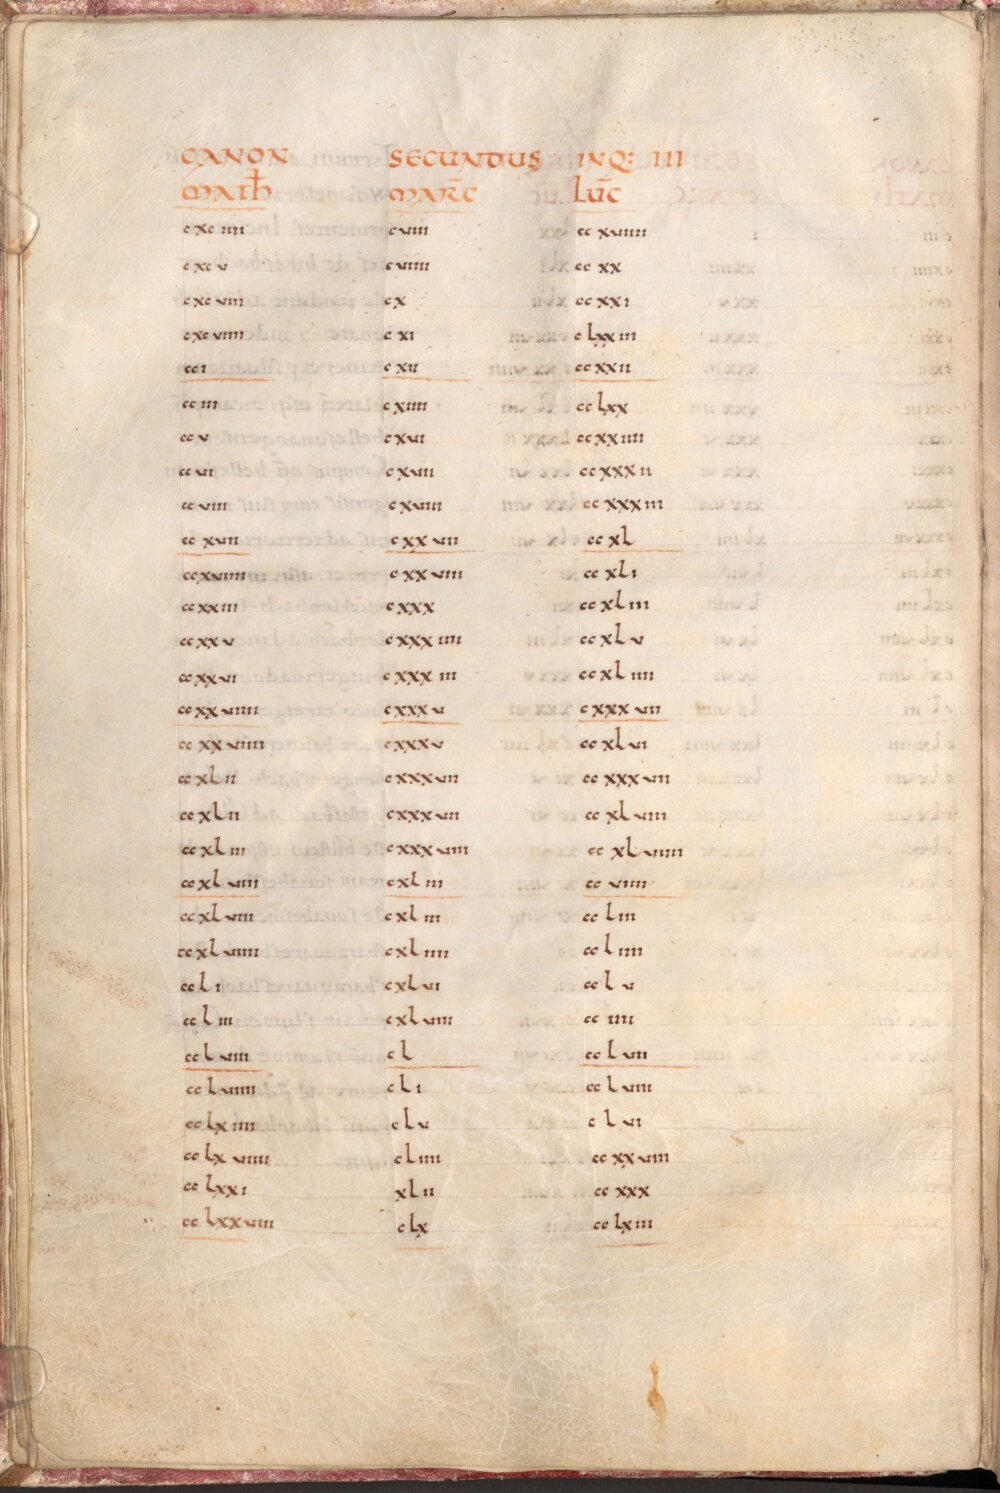 CANON SECUNDUS INQ: III
MATH MARC LUC
cxciiii cviii ccxviiii
cxcv cviiii ccxx
cxcviii cx ccxxi
cxcviiii cxi clxxiii
cci cxii ccxxii
cciii cxiiii cclxx
ccv cxvi ccxxiiii
ccvi cxvii ccxxxii
ccviii cxviii ccxxxiii
ccxvii cxxvii ccxl
ccxviiii cxxviii ccxli
ccxxiii cxxx ccxliii
ccxxv cxxxiiii ccxlv
ccxxvi cxxxiii ccxliiii
ccxxviiii cxxxv cxxxvii
ccxxviiii cxxxv ccxlvi
ccxlii cxxxvii ccxxxvii
ccxlii cxxxvii ccxlviii
ccxliii cxxxviii ccxlviiii
ccxlviii cxliii ccviiii
ccxlviii cxliii ccliii
ccxlviiii cxliiii ccliiii
ccli cxlvi cclv
ccliii cxlviii cciiii
cclviii cl cclvii
cclviiii cli cclviii
cclxiiii clv clvi
cclxviiii cliiii ccxxviiii
cclxxi xlii ccxxx
cclxxviii clx cclxiii